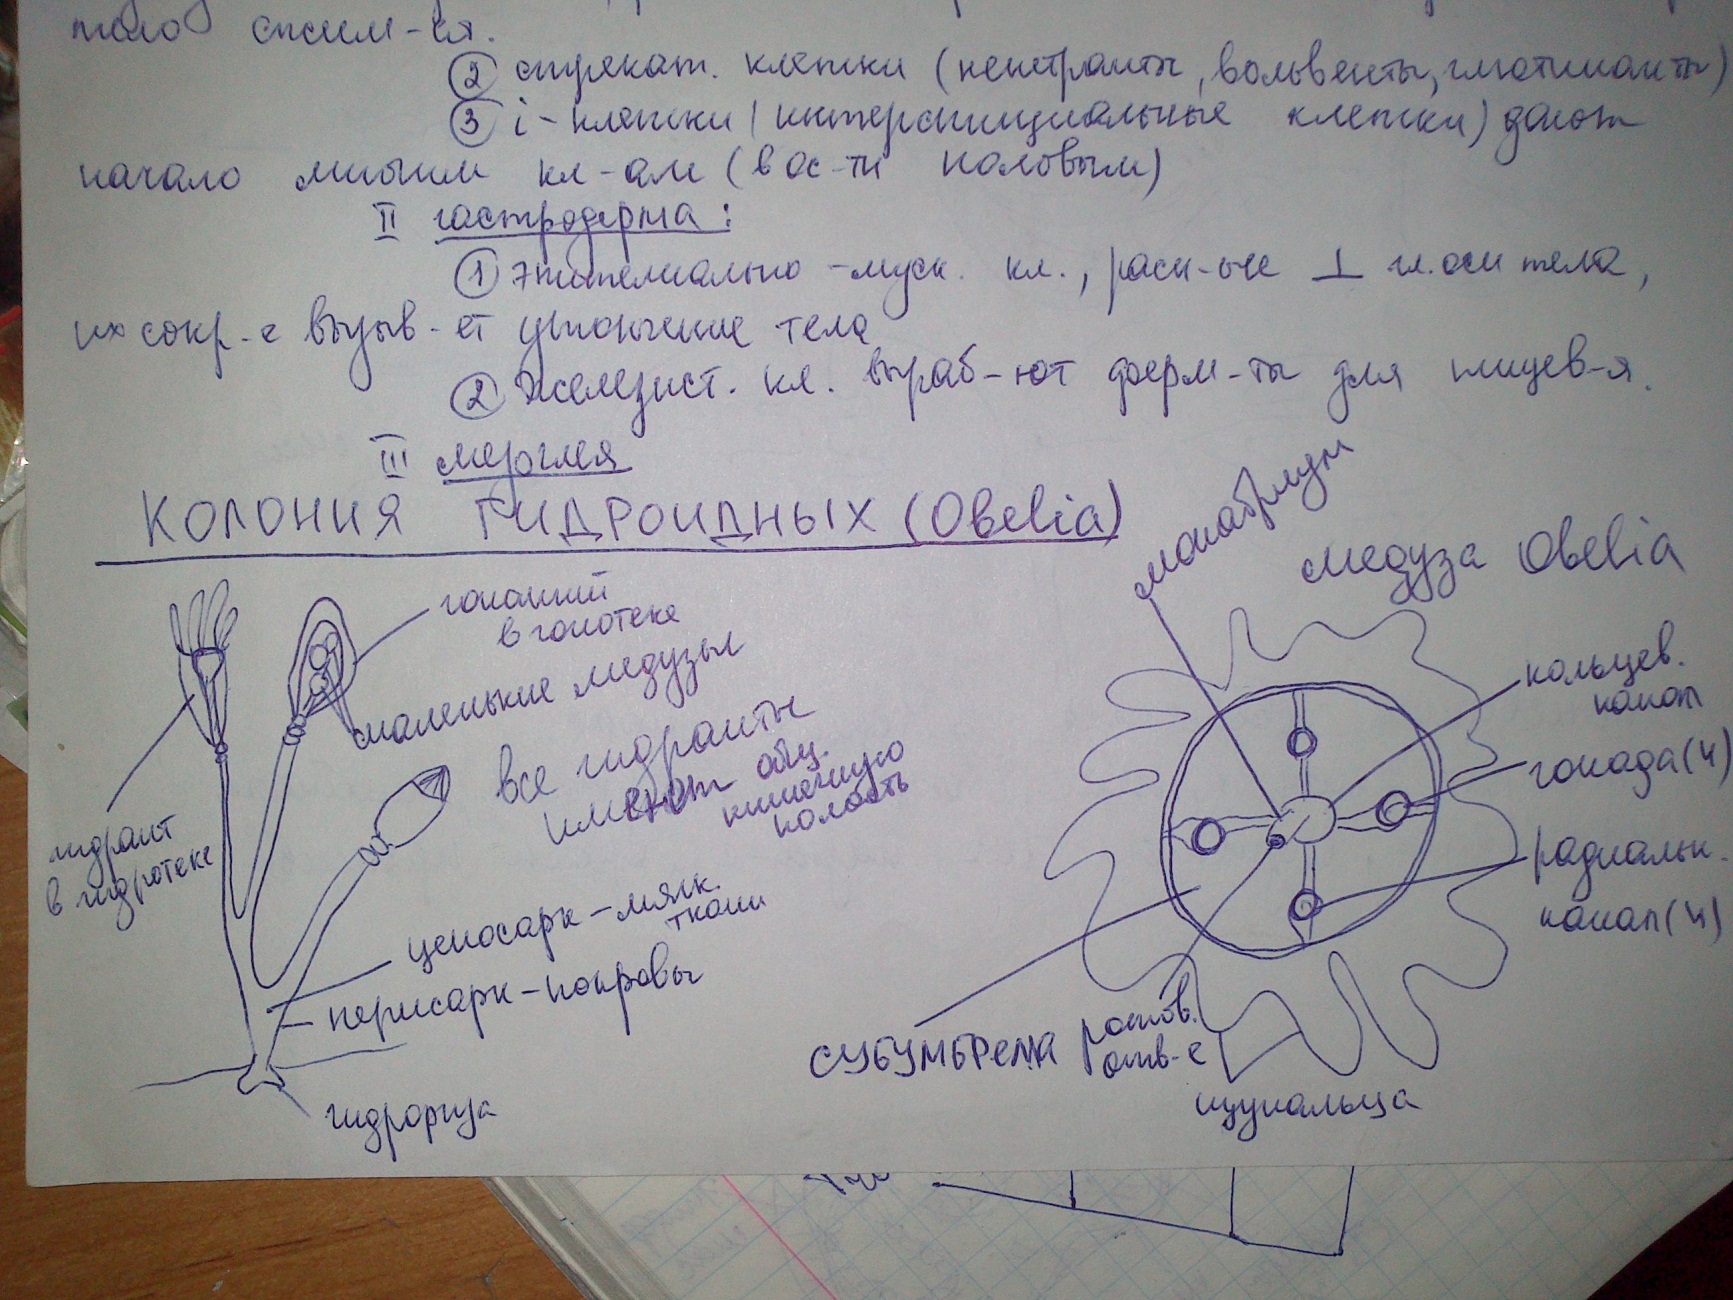 тело сжим-ся.
② стрекат. клетки (пенетранты, вольвенты, глютинанты)
③ i-клетки (интерстициальные клетки) дают
начало многим кл-ам (в ос-ти половым)
II гастродерма:
① Эпителиально-муск. кл., расп-ые ⊥ гл. оси тела,
их сокр-е вызыв-ет утончение тела
② Железист. кл. выраб-ют ферм-ты для пищев-я.
III мезоглея
КОЛОНИЯ ГИДРОИДНЫХ (Obelia)
гонангий
в гонотеке
маленькие медузы
все гидранты
имеют общ.
кишечную
полость
гидрант
в гидротеке
ценосарк - мягк.
ткани
перисарк - покровы
гидрориза
манубриум
медуза Obelia
кольцев.
канал
гонада (4)
радиальн.
канал (4)
СУБУМБРЕЛА
ротов.
отв-е
щупальца